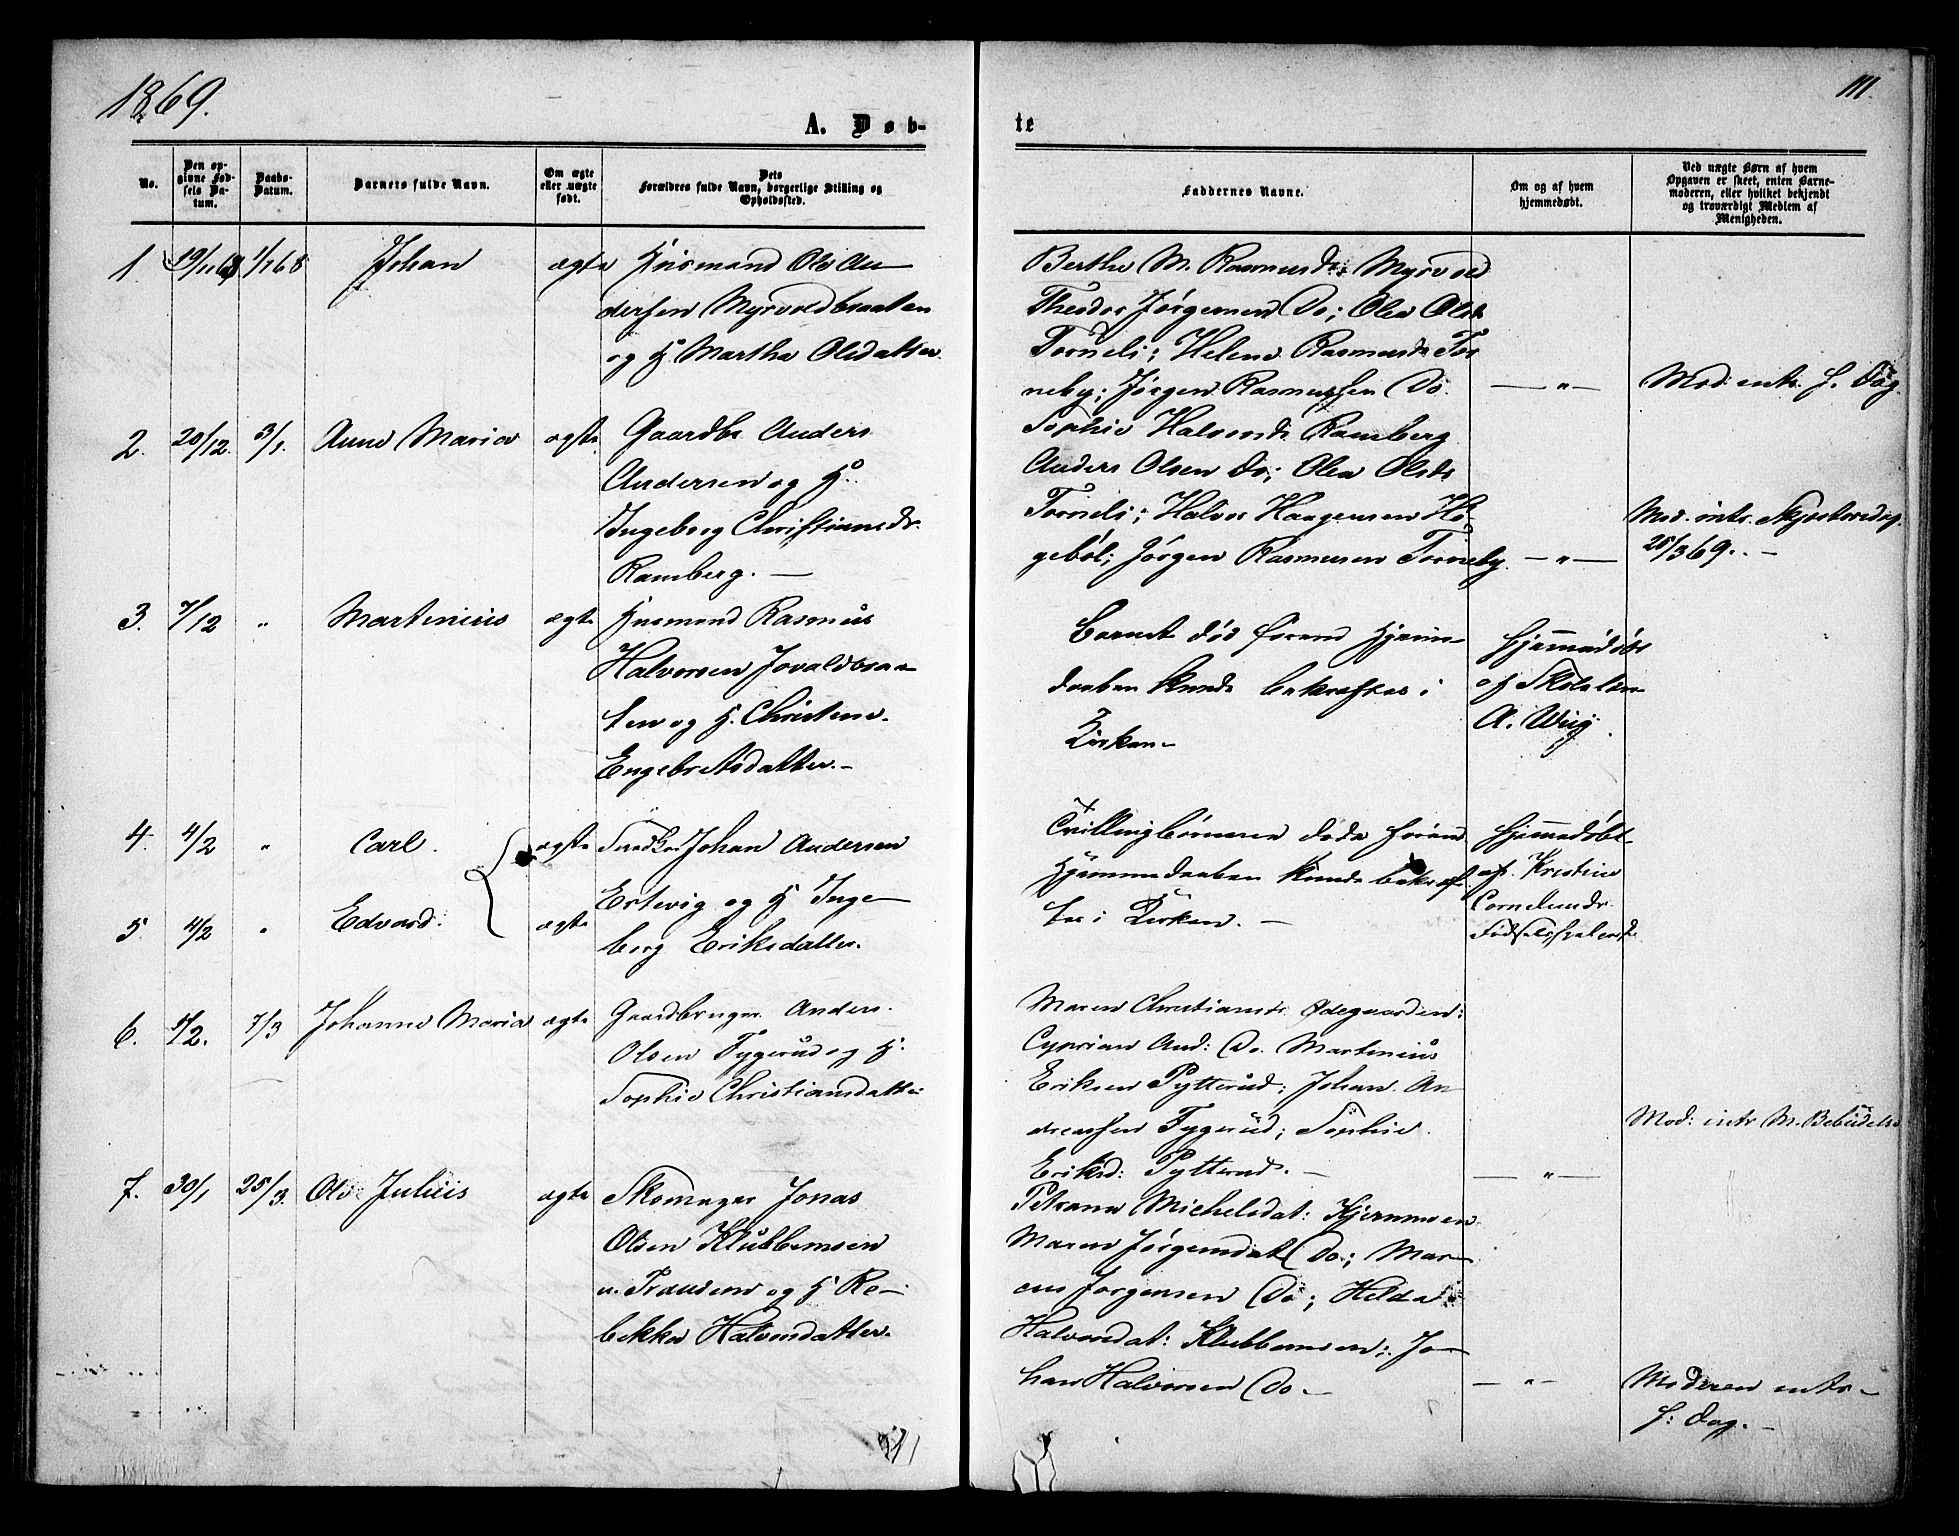 1869.
111.
A. Døb-
te
No.
Den op-
givne Fød-
sels Da-
tum.
Daabs-
Datum.
Barnets fulde Navn.
Om ægte
eller uægte
født.
Dets
Forældres fulde Navn, borgerlige Stilling og
Opholdssted.
Faddernes Navne.
Om og af hvem
hjemmedøbt.
Ved uægte Børn af hvem
Opgaven er skeet, enten Barne-
moderen, eller hvilket bekjendt
og troværdigt Medlem af
Menigheden.
1. 19/11 68 1/1 68 Johan ægte Husmand Ole An-
dersen Myrvoldbraaten
og H. Martha Olsdatter
Berthe M. Rasmusdr. Myrvold
Theodor Jørgensen Do; Olea Olsdr
Torneli; Helene Rasmusdr Tor
neby; Jørgen Rasmussen Do. — " — Mod. intr. s. Dag.
2. 20/12. 3/1. Anne Maria ægte Gaardbr Anders
Andersen og H.
Ingeborg Christiansdr.
Ramberg. —
Sophie Halvorsdr Ramberg
Anders Olsen Do; Olea Olsdr
Torneli; Halvor Haagensen Hø-
gebøl; Jørgen Rasmusen Torneby. — " —
Mod. intr. Skjærtorsdag
25/3 69. —
3. 7/12 " Martinius ægte Husmand Rasmus
Halvorsen Jovaldbraa-
ten og H. Christine
Engebretsdatter. —
Barnet død førend Hjem-
daaben kunde bekræftes i
Kirken —
Hjemmedøbt
af Skolelær
A. Wiig.
4. 4/2 " Carl. ægte Johan Andersen
Ertevig og H Inge-
5. 4/2 " Edvard. ægte
berg Eriksdatter.
Tvillingbørnene døde førend
Hjemmedaaben kunde bekræf
tes i Kirken. —
Hjemmedøbt
af Kristine
Cornelius dr.
6. 5/2. 7/3 Johanne Maria ægte Gaardbruger Anders
Olsen Fygerud og H.
Sophie Christiansdatter
Maren Christiansdr. Ødegaarden:
Cyprian And: Do. Martinius
Eriksen Pytterud; Johan An
dreassen Fygerud; Sophie
Eriksd: Pytterud. — — " —
Mod: intr M. Bebudelse
7. 30/1 25/3. Ole Julius ægte Skomager Jonas
Olsen Klubbemoen
u. Frausene og H Re-
bekka Halvorsdatter.
Petrana Michelsdat: Kjernmoen
Maren Jørgensdat Do.; Mar-
cus Jørgensen Do; Helda
Halvorsdat: Klubbemoen; Jo-
han Halvorsen Do. — — " —
Moderen intr-
s: Dag. —